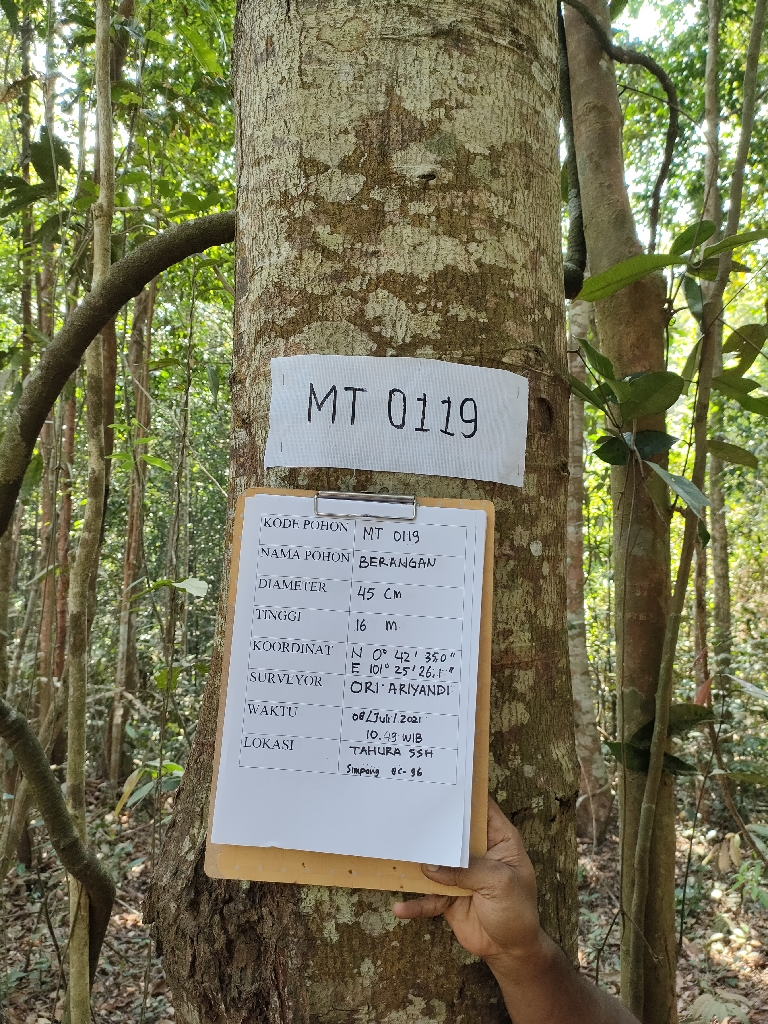 MT 0119
KODE POHON MT 0119
NAMA POHON BERANGAN
DIAMETER 45 Cm
TINGGI 16 m
KOORDINAT N 0° 42' 35.0"
E 101° 25' 26.1"
SURVEYOR ORI ARIYANDI
WAKTU 08/Juli/2021
10.43 WIB
LOKASI TAHURA SSH
Simpang